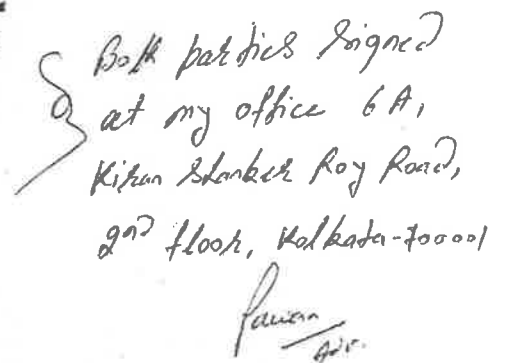 Both parties signed
at my office 6A,
Kiran Shanker Roy Road,
2nd floor, Kolkata-700001
Pawan
Adv.